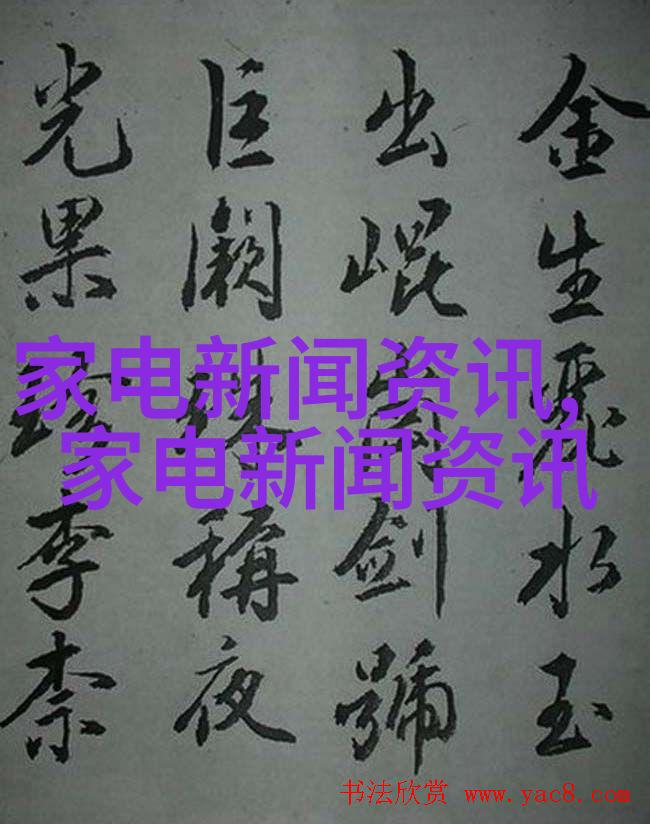 金生麗水玉
出崐剑號
巨闕珠稱夜
光果珍李柰
家电新闻资讯,
家电新闻资讯
书法欣赏 www.yac8.com